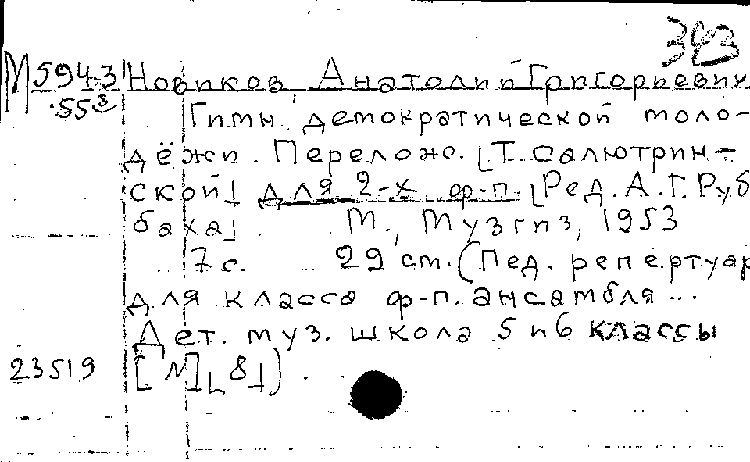 343
М 594-3 Новиков, Анатолий Григорьевич
.55³ Гимн демократической моло-
дёжи. Перелож. [Т. Салютрин-
ской] для 2-х ф-п. [Ред. А.Г. Руб
баха]. М., Музгиз, 1953
7 с. 29 см. (Пед. репертуар
для класса ф-п. ансамбля...
Дет. муз. школа 5 и 6 классы
23519 [N][8])